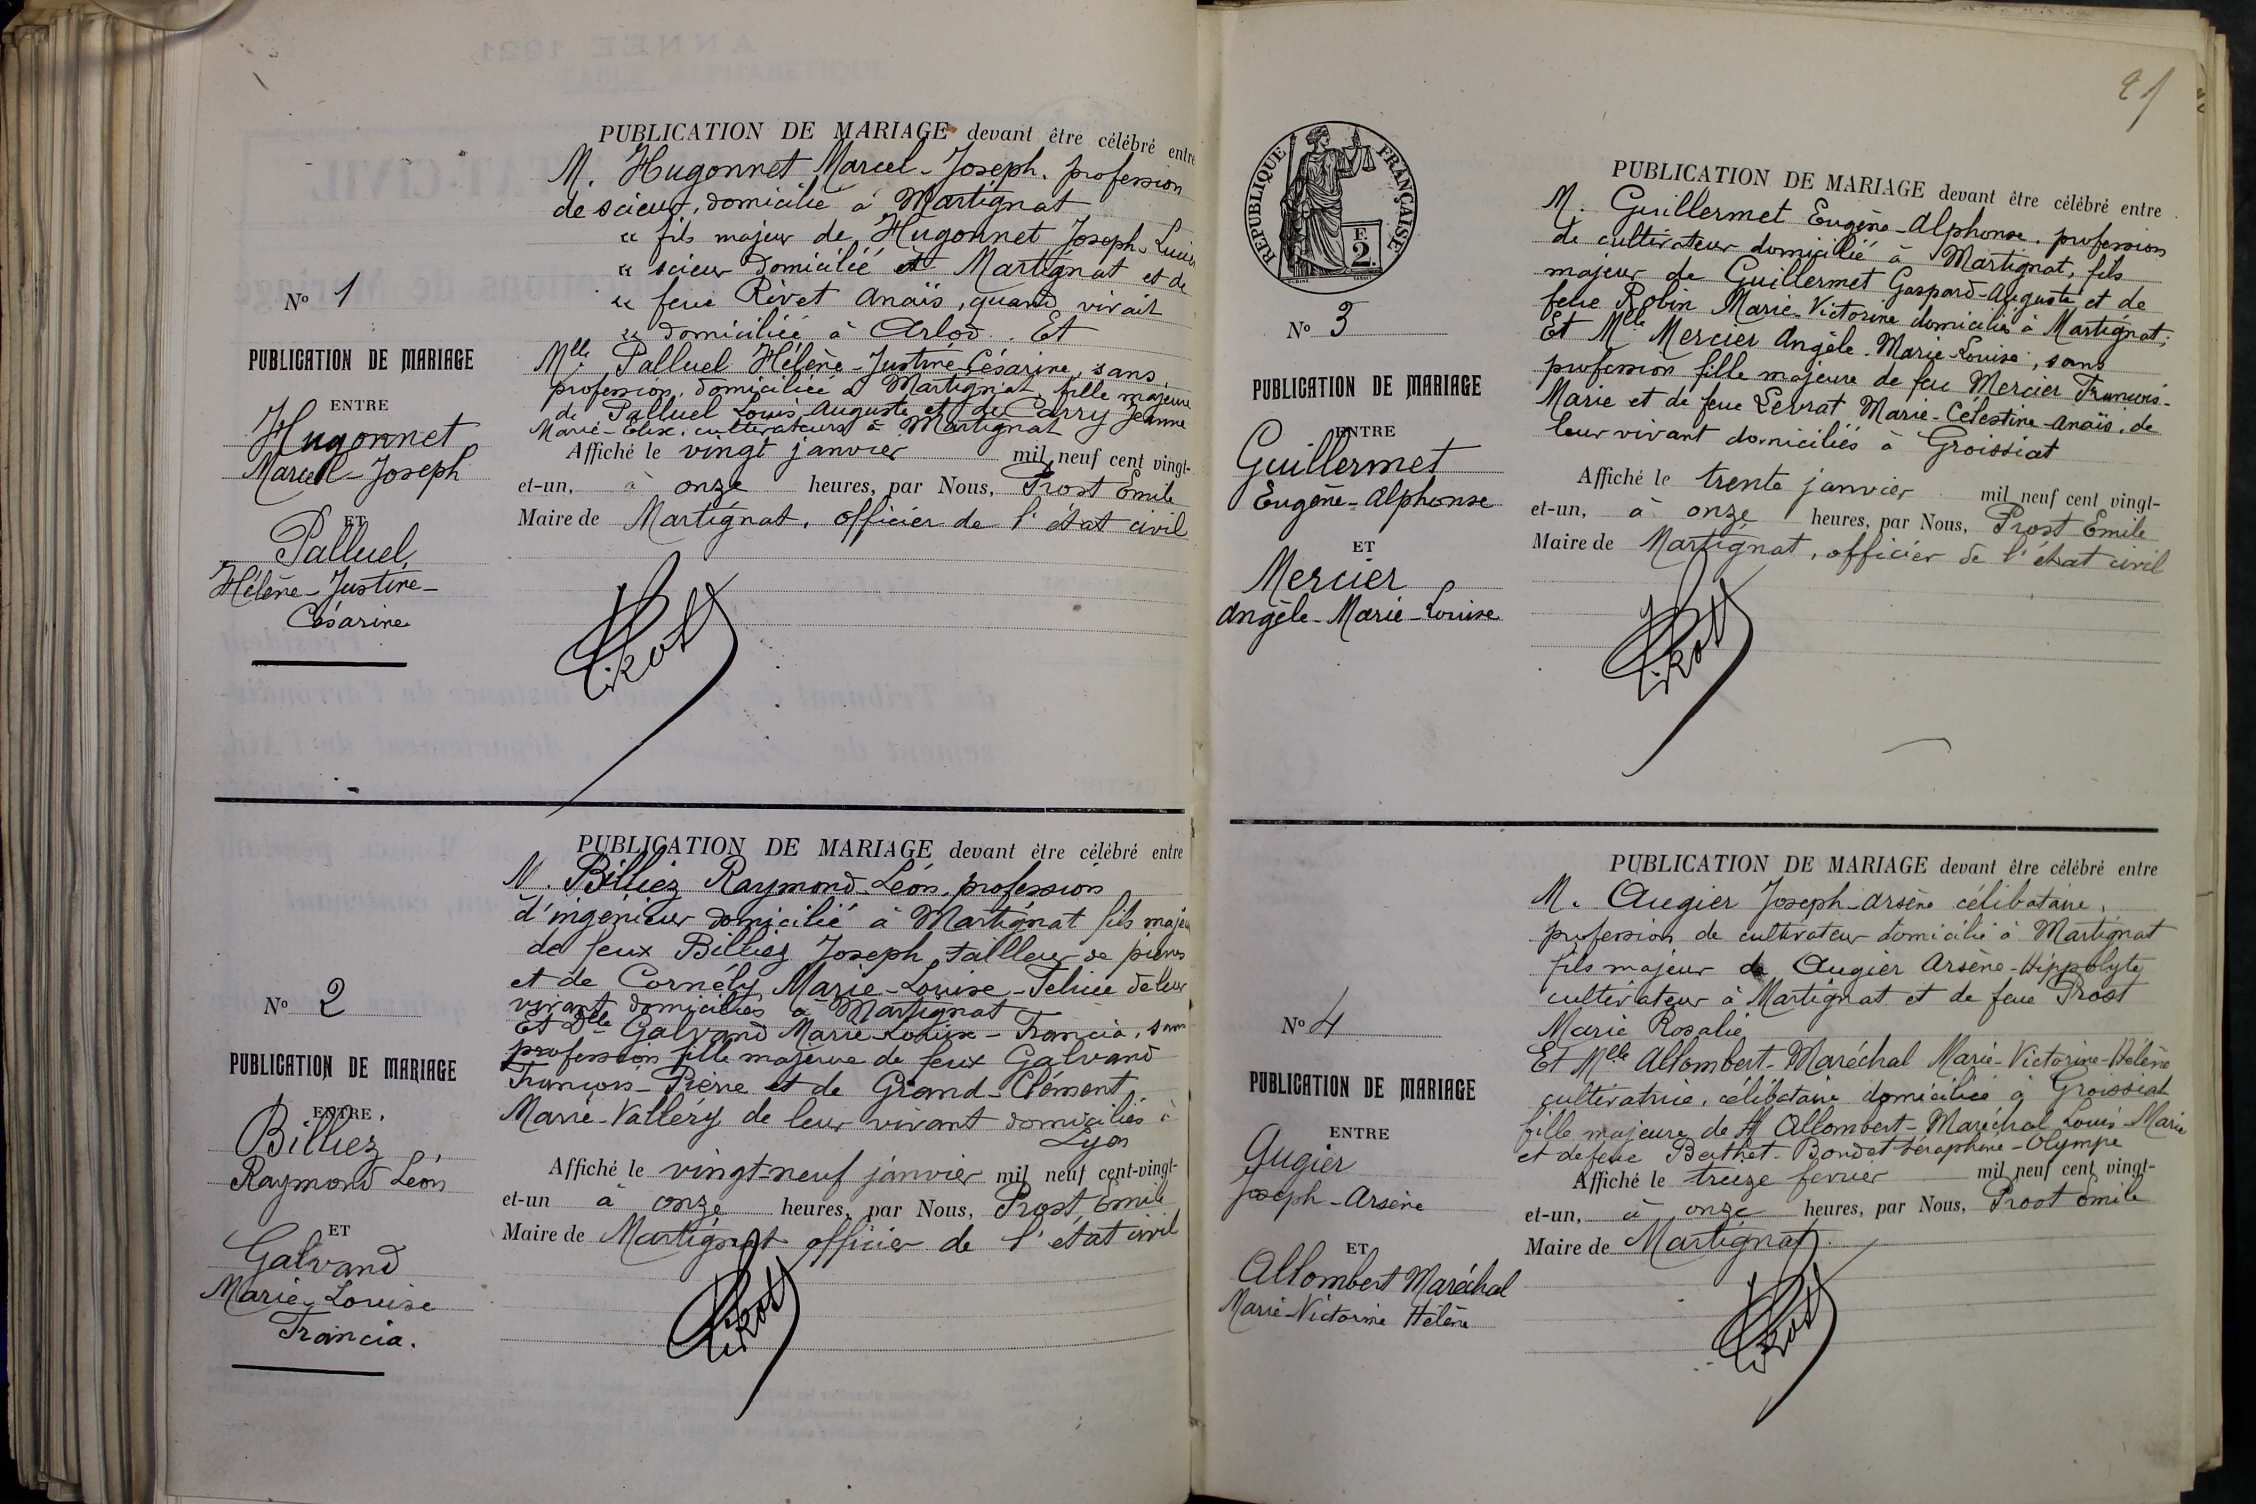 N° 1
PUBLICATION DE MARIAGE
ENTRE
Hugonnet
Marcel-Joseph
ET
Palluel,
Hélène-Justine-
Césarine
PUBLICATION DE MARIAGE devant être célébré entre
M. Hugonnet Marcel-Joseph. profession
de scieur, domicilié à Martignat
" fils majeur de Hugonnet Joseph
" scieur domicilié à Martignat et de
" feue Rivet Anaïs, quand vivait
" domiciliée à Arlod. Et
Mlle Palluel Hélène-Justine-Césarine, sans
profession, domiciliée à Martignat fille majeure
de Palluel Louis-Auguste et de Carry Jeanne
Marie-Elise, cultivateurs à Martignat
Affiché le vingt janvier mil neuf cent vingt-
et-un, à onze heures, par Nous, Prost Emile
Maire de Martignat, officier de l'état civil
Prost
N° 2
PUBLICATION DE MARIAGE
ENTRE
Billiez
Raymond Léon
ET
Galvand
Marie-Louise
Francia.
PUBLICATION DE MARIAGE devant être célébré entre
M. Billiez Raymond-Léon, profession
d'ingénieur domicilié à Martignat fils majeu
de feux Billiez Joseph, tailleur de pierres
et de Cornély Marie-Louise-Félicie de leur
vivant domiciliés à Martignat
Et Dlle Galvand Marie-Louise-Francia, sans
profession fille majeure de feux Galvand
François-Pierre et de Grand-Clément
Marie-Valléry de leur vivant domiciliés à
Lyon
Affiché le vingt-neuf janvier mil neuf cent-vingt-
et-un à onze heures, par Nous, Prost Emile
Maire de Martignat officier de l'état civil
Prost
21
REPUBLIQUE FRANÇAISE
F.
2.
N° 3
PUBLICATION DE MARIAGE
ENTRE
Guillermet
Eugène-Alphonse
ET
Mercier
Angèle-Marie-Louise
PUBLICATION DE MARIAGE devant être célébré entre
M. Guillermet Eugène-Alphonse. profession
de cultivateur domicilié à Martignat, fils
majeur de Guillermet Gaspard-Auguste et de
feue Robin Marie-Victorine domiciliés à Martignat;
Et Mlle Mercier Angèle-Marie-Louise, sans
profession fille majeure de feu Mercier François-
Marie et de feue Levrat Marie-Célestine-Anaïs, de
leur vivant domiciliés à Groissiat
Affiché le trente janvier mil neuf cent vingt-
et-un, à onze heures, par Nous, Prost Emile
Maire de Martignat, officier de l'état civil
Prost
N° 4
PUBLICATION DE MARIAGE
ENTRE
Augier
Joseph-Arsène
ET
Allombert Maréchal
Marie-Victorine Hélène
PUBLICATION DE MARIAGE devant être célébré entre
M. Augier Joseph-Arsène célibataire,
profession de cultivateur domicilié à Martignat
fils majeur de Augier Arsène-Hippolyte
cultivateur à Martignat et de feue Prost
Marie Rosalie
Et Mlle Allombert-Maréchal Marie-Victorine-Hélène
cultivatrice, célibataire domiciliée à Groissiat
fille majeure de Allombert-Maréchal Louis-Marie
et de feue Berthet-Bondet Séraphine-Olympe
Affiché le treize fevrier mil neuf cent vingt-
et-un, à onze heures, par Nous, Prost Emile
Maire de Martignat.
Prost